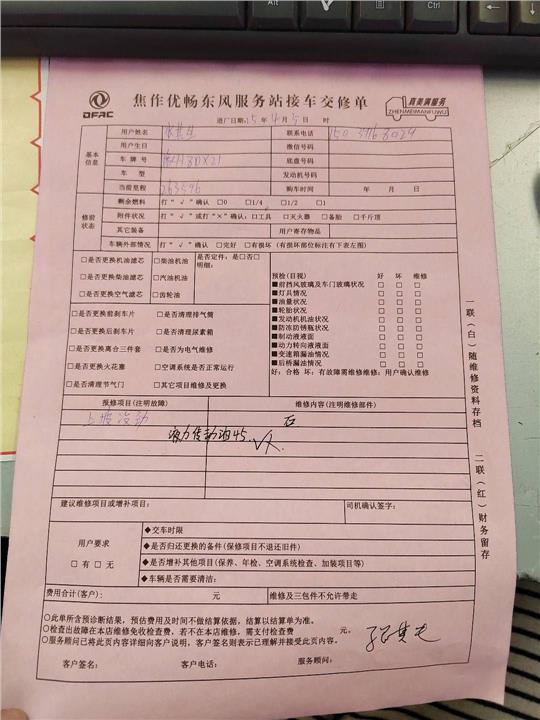 DFAC
焦作优畅东风服务站接车交修单
真美满服务
ZHENMEIMANFUWU
进厂日期:15年4月5日 时
基本信息
用户姓名 联系电话
用户生日 微信号码
车牌号 底盘号码
车型 发动机号码
当前里程 263596 购车时间 年 月 日
修前状态
剩余燃料 打“√”确认 □0 □1/4 □1/2 □1
附件状况 打“√”或打“×”确认:□工具 □灭火器 □备胎 □千斤顶
其它装备 用户寄存物品
车辆外部情况 打“√”确认 □完好 □有损坏(有损坏部位标注有下表左图)
□是否更换机油滤芯 □柴油机油 是否定件:是□否□
明细:
□是否更换柴油滤芯 □汽油机油
□是否更换空气滤芯 □齿轮油
□是否更换前刹车片 □是否清理排气筒
□是否更换后刹车片 □是否清理尿素箱
□是否更换离合三件套 □是否为电气维修
□是否更换火花塞 □空调系统是否正常运行
□是否清理节气门 □其它项目维修及更换
预检(目视) 好 坏 维修
■前挡风玻璃及车门玻璃状况 □ □ □
■灯具情况 □ □ □
■油量状况 □ □ □
■轮胎状况 □ □ □
■发动机机油状况 □ □ □
■防冻防锈瓶状况 □ □ □
■制动液液面 □ □ □
■动力转向液液面 □ □ □
■变速箱漏油情况 □ □ □
■后桥漏油情况 □ □ □
好:合格 坏:有故障需维修维修:用户确认维修
报修项目(注明故障) 维修内容(注明维修部件)
上坡没劲
液力传动油45
建议维修项目或增补项目: 司机确认签字:
用户要求
□有 □无
◆交车时限
◆是否归还更换的备件(保修项目不退还旧件)
◆是否增补其他项目(保养、年检、空调系统检查、加装项目等)
◆车辆是否需要清洁:
费用合计(客户): 元 维修及三包件不允许带走
○此单所含预诊断结果,预估费用及时间不做结算依据,结算以结算单为准。
○检查出故障在本店维修免收检查费,若不在本店维修,需支付检查费 元。
○服务顾问已将此页内容详细向客户说明,客户签名则表示已理解并接受此页内容。
客户签名: 客户电话: 服务顾问:
一联(白)随维修资料存档
二联(红)财务留存